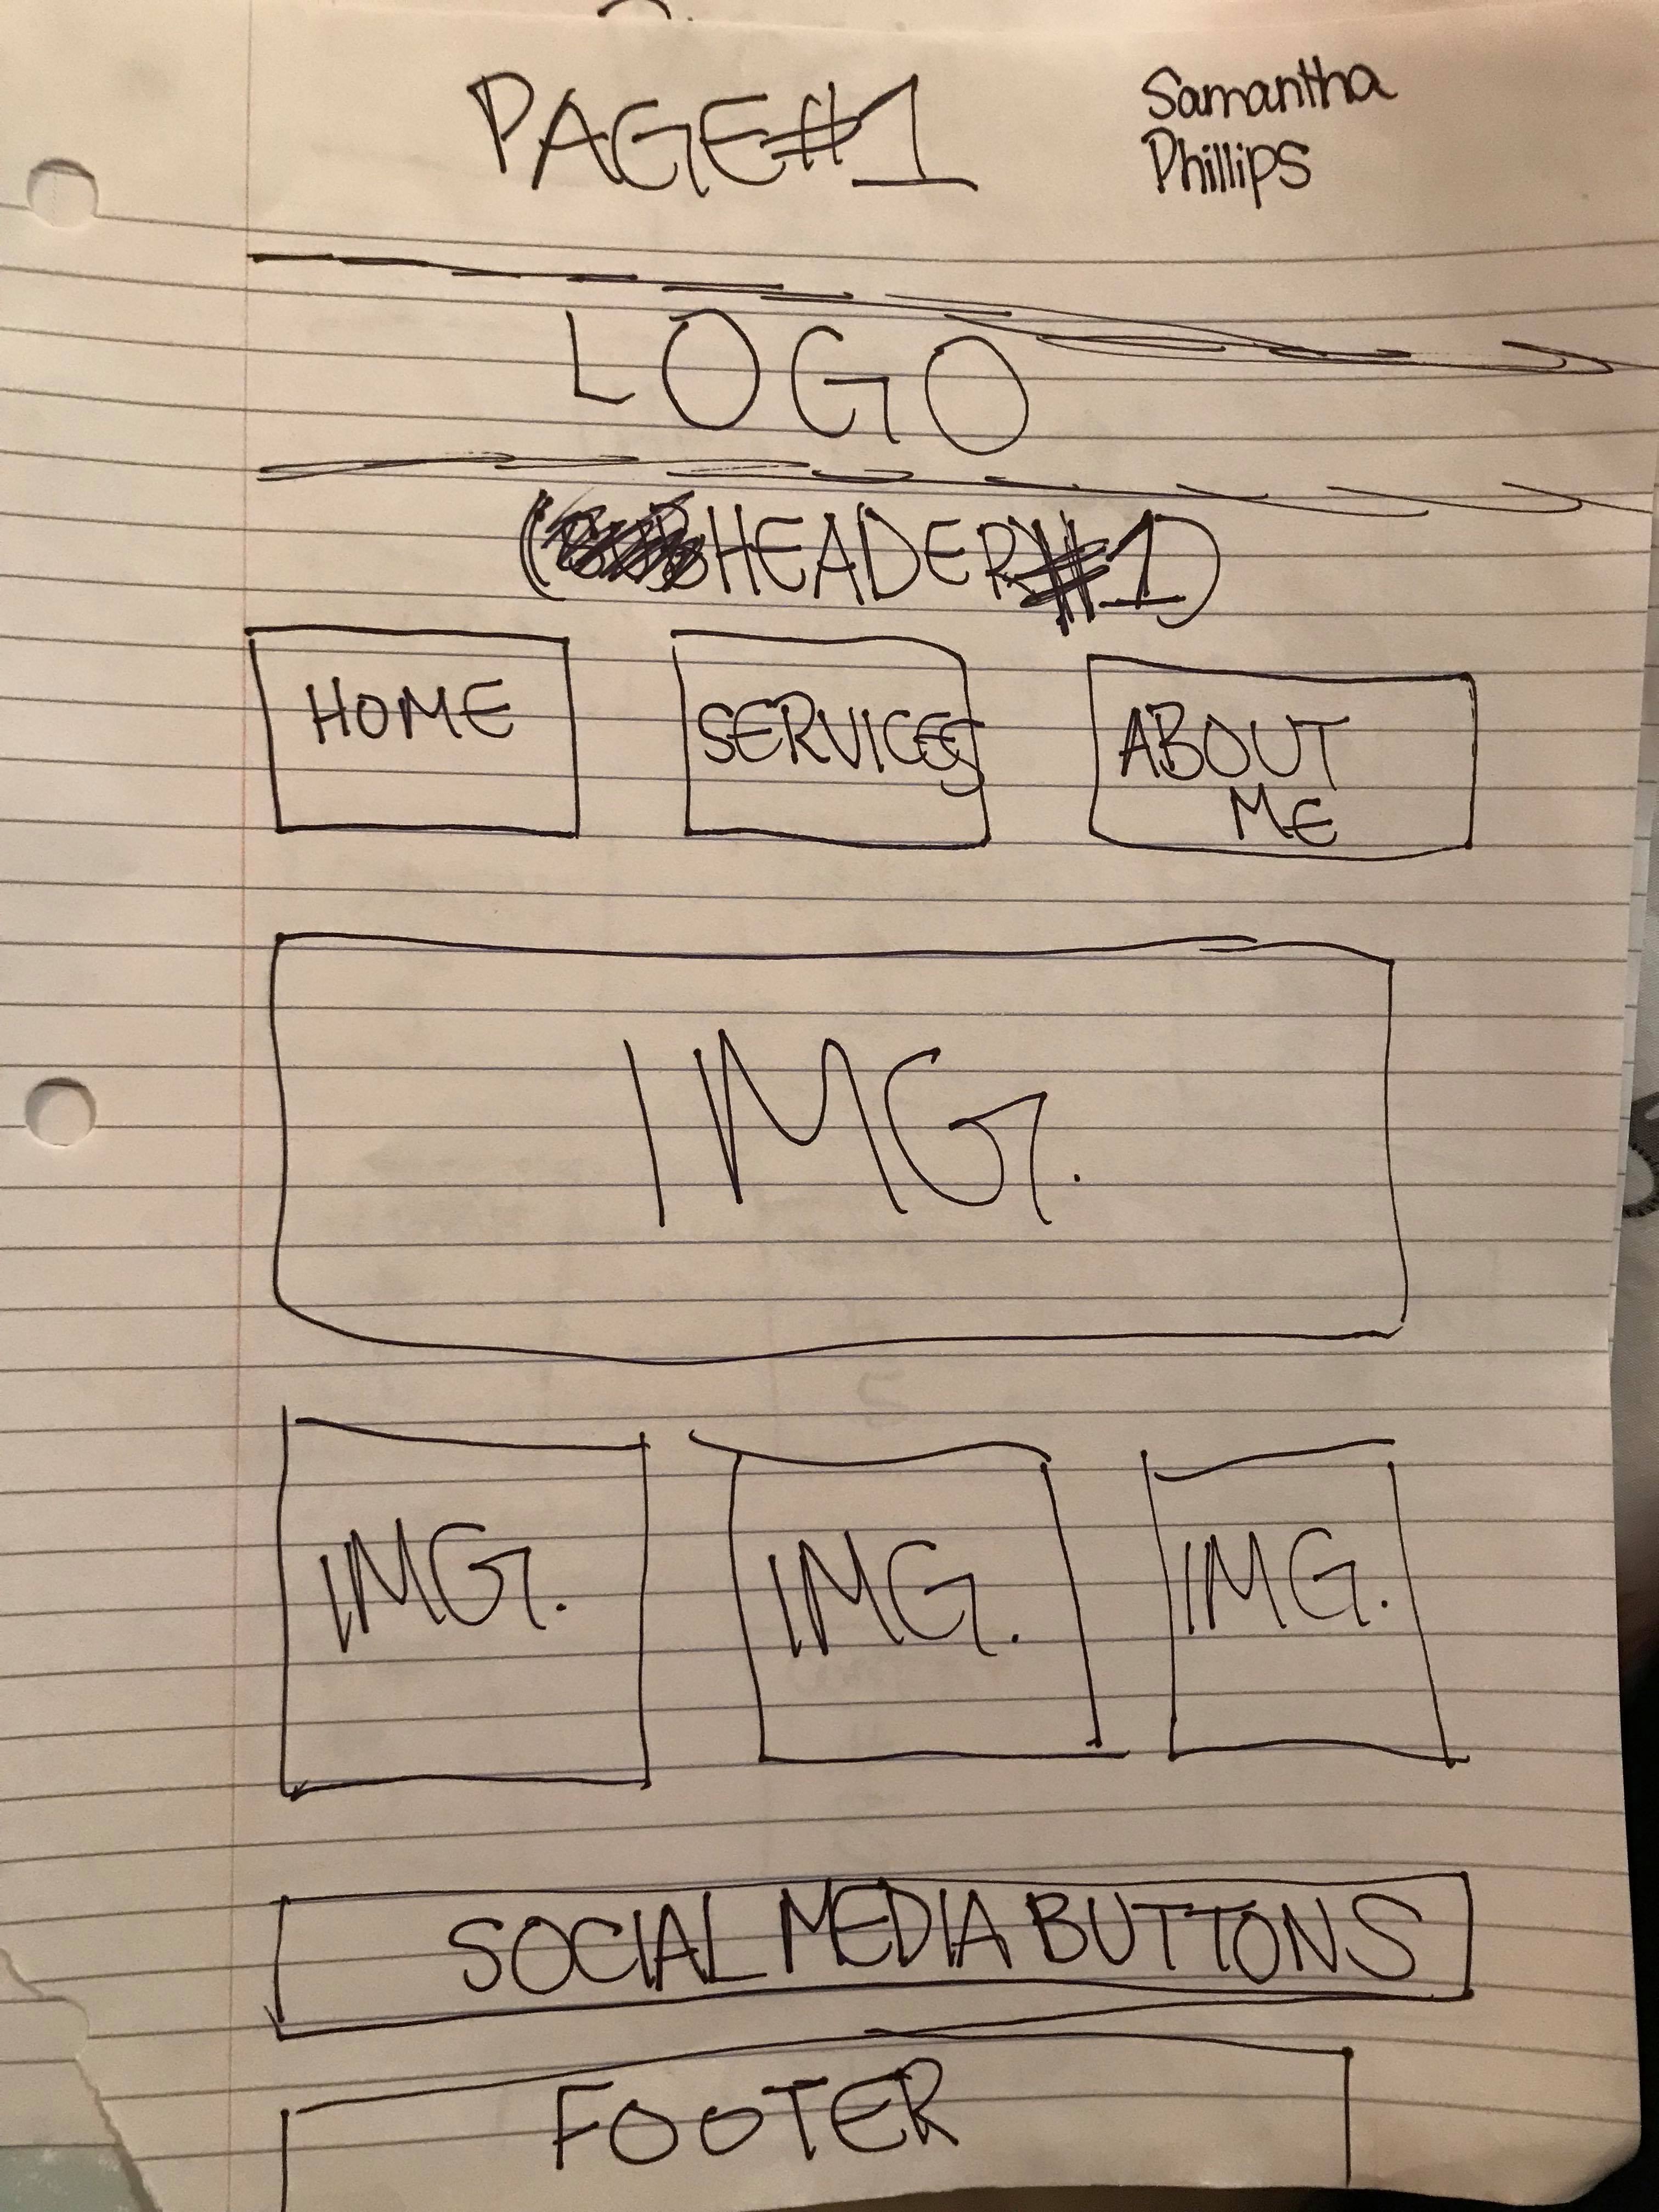 PAGE#1
Samantha
Phillips
LOGO
(HEADER#1)
HOME
SERVICES
ABOUT
ME
IMG.
IMG.
IMG.
IMG.
SOCIAL MEDIA BUTTONS
FOOTER